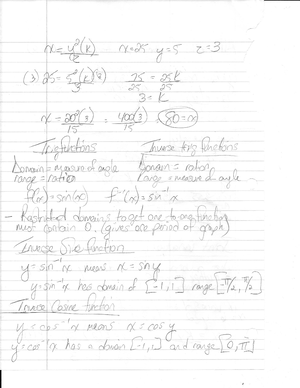 x = y²(k)/z x=25 y=5 z=3
(3) 25 = 5²(k)(3)/3 75/25 = 25k/25
3 = k
x = 20²(3)/15 = 400(3)/15 = 80 = x
Trig functions Inverse trig functions
Domain = measure of angle Domain = ratio
range = ratio range = measure of angle
f(x) = sin(x) f⁻¹(x) = sin⁻¹x
- Restricted domains to get one to one function
must contain 0. (gives one period of graph)
Inverse Sine function
y = sin⁻¹x means x = sin y
y = sin⁻¹x has domain of [-1,1] range [-π/2, π/2]
Inverse Cosine function
y = cos⁻¹x means x = cos y
y = cos⁻¹x has a domain [-1,1] and range [0,π]